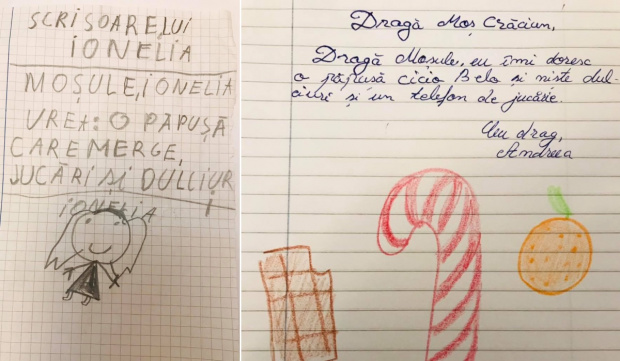 SCRISOARE,LUI
IONELIA
MOȘULE,IONELIA
VREA: O PĂPUȘĂ
CARE MERGE,
JUCĂRI ȘI DULCIUR
I
IONELIA
Dragă Moș Crăciun,
Dragă Moșule, eu îmi doresc
o păpușă cicio Belo și niste dul-
ciuri și un telefon de jucărie.
Cu drag,
Andreea